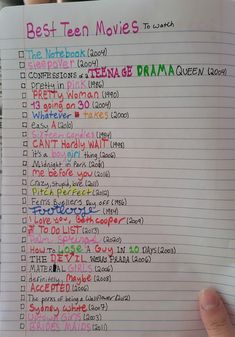 Best Teen Movies To watch
The Notebook (2004)
Sleepover (2004)
CONFESSIONS of a TEENAGE DRAMA QUEEN (2004)
pretty in pink (1986)
PRETTY Woman (1990)
13 going on 30 (2004)
Whatever it takes (2000)
easy A (2010)
Sixteen candles (1984)
CAN'T Hardly WAIT (1998)
It's a boy girl thing (2006)
Midnight in Paris (2011)
me before you (2016)
Crazy, stupid, love (2011)
Pitch perfect (2012)
Ferris Buellers Day off (1986)
Footloose (1984)
I Love You, Beth cooper (2009)
THE TO DO LIST (2013)
How to LOSE A Guy IN 10 DAYS (2003)
THE DEVIL WEARS PRADA (2006)
MATERIAL GIRLS (2006)
definitely, Maybe (2008)
ACCEPTED (2006)
The perks of being a Wallflower (2012)
Sydney white (2007)
UPTOWN Girls (2003)
BRIDES MAIDS (2011)